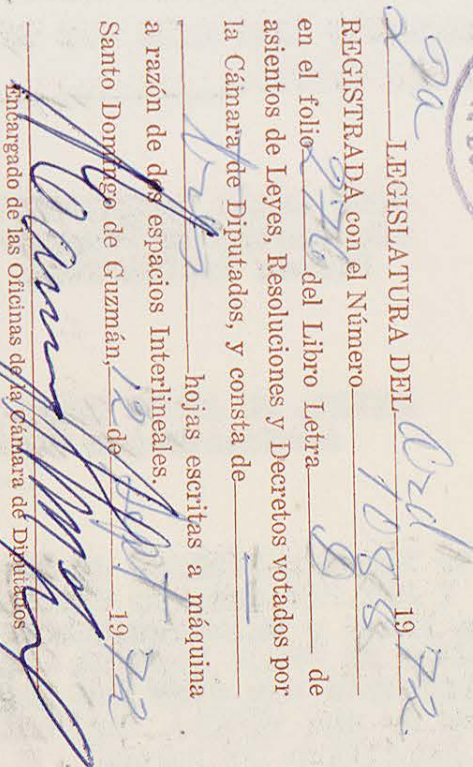 2da LEGISLATURA DEL Ord 1972.
REGISTRADA con el Número 1088
en el folio 276 del Libro Letra de
asientos de Leyes, Resoluciones y Decretos votados por
la Cámara de Diputados, y consta de
tres hojas escritas a máquina
a razón de dos espacios Interlineales.
Santo Domingo de Guzmán, 12 de Sept 1972
Encargado de las Oficinas de la Cámara de Diputados